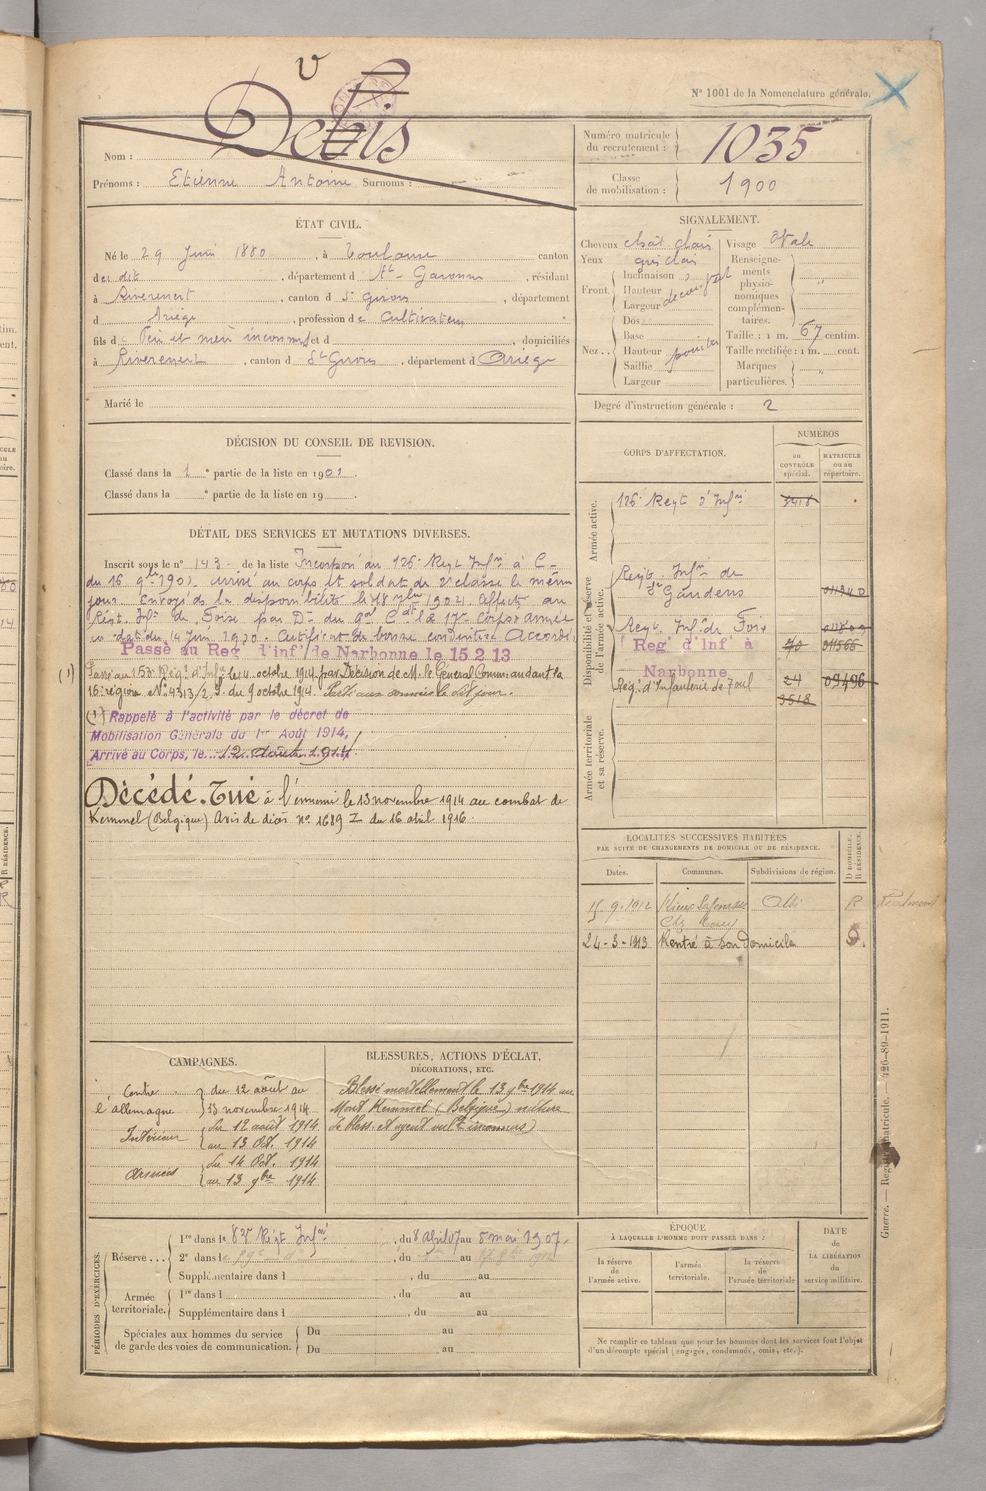 V
Debis
N° 1001 de la Nomenclature générale.
Nom :
Prénoms : Etienne Antoine Surnoms :
Numéro matricule du recrutement : 1035
Classe de mobilisation : 1900
ÉTAT CIVIL.
Né le 29 Juin 1880, à Toulouse canton
de dit, département d Hte Garonne, résidant
à Riverenert, canton d St Girons, département
d Ariège, profession de Cultivateur
fils de Père et mère inconnus et d , domiciliés
à Riverenert, canton d St Girons, département d Ariège
Marié le
SIGNALEMENT.
Cheveux chât clair
Yeux gris clair
Front. Inclinaison
Hauteur
Largeur
Nez.. Dos
Base
Hauteur
Saillie
Largeur
Visage Ovale
Renseignements physionomiques complémentaires. "
Taille : 1 m. 67 centim.
Taille rectifiée : 1 m. cent.
Marques particulières. "
Degré d'instruction générale : 2
DÉCISION DU CONSEIL DE REVISION.
Classé dans la 1 e partie de la liste en 1901
Classé dans la e partie de la liste en 19 .
DÉTAIL DES SERVICES ET MUTATIONS DIVERSES.
Inscrit sous le n° 143 de la liste Incorporé au 126e Regt Infie à C-
du 16 9bre 1901. arrivé au corps et soldat de 2e classe le même
jour. Envoyé ds la disponibilité le 18 1902. Affecté au
Régt. Infie de Foix par Don du Gal Ct le 17e Corps armée
en date du 14 Juin 1910. Certificat de bonne conduite Accordé
Passé au Regt d'inf/ de Narbonne le 15 2 13
(1) Passé au 153e Regt d'Infie le 4 octobre 1914 par Décision de M. le Général Commandant la
16e région N° 4313/2 du 9 octobre 1914. Parti aux armées le dit jour.
(1) Rappelé à l'activité par le décret de
Mobilisation Générale du 1er Août 1914,
Arrivé au Corps, le 12 août 1914
Décédé. Tué à l'ennemi le 13 novembre 1914 au combat de
Kemmel (Belgique) Avis de décès n° 1689 Z du 16 avril 1916.
CORPS D'AFFECTATION.
NUMÉROS
au CONTRÔLE spécial.
MATRICULE ou au répertoire.
Armée active.
126e Regt d'Infie 3418
Disponibilité et réserve de l'armée active.
Regt. Infie de St Gaudens 011340
Regt. Infie de Foix
Regt d'Inf à Narbonne 70 011566
Regt d'Infanterie de Toul 24 09496
3518
Armée territoriale et sa réserve.
LOCALITÉS SUCCESSIVES HABITÉES
PAR SUITE DE CHANGEMENTS DE DOMICILE OU DE RÉSIDENCE.
Dates. Communes. Subdivisions de région. D DOMICILE. R RÉSIDENCE.
15.9.1912 Albi R Réalmont
24-3-1913 Rentré à son domicile D.
CAMPAGNES.
Contre l'allemagne du 12 août au
13 novembre 1914
Intérieur du 12 août 1914
au 13 Oct. 1914
Armées du 14 Oct. 1914
au 13 9bre 1914
BLESSURES, ACTIONS D'ÉCLAT,
DÉCORATIONS, ETC.
Blessé mortellement le 13 9bre 1914 au
Mont Kemmel (Belgique) nature
de bless. et agent inconnus)
PÉRIODES D'EXERCICES.
Réserve... 1re dans le 83e Régt Infie, du 8 avril 07 au 5 mai 1907.
2e dans le 59e , du au
Supplémentaire dans l , du au
Armée territoriale. 1re dans l , du au
Supplémentaire dans l , du au
Spéciales aux hommes du service de garde des voies de communication. Du au
Du au
ÉPOQUE
À LAQUELLE L'HOMME DOIT PASSER DANS :
la réserve de l'armée active.
l'armée territoriale.
la réserve de l'armée territoriale
DATE de LA LIBÉRATION du service militaire.
Ne remplir ce tableau que pour les hommes dont les services font l'objet
d'un décompte spécial (engagés, condamnés, omis, etc.).
Guerre. — Registre matricule. — 126-89-1911.